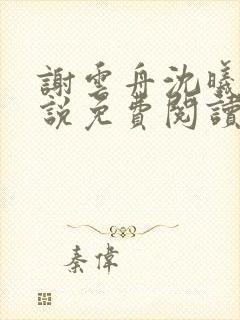 謝雲舟沈曦
說免費閱讀
秦偉